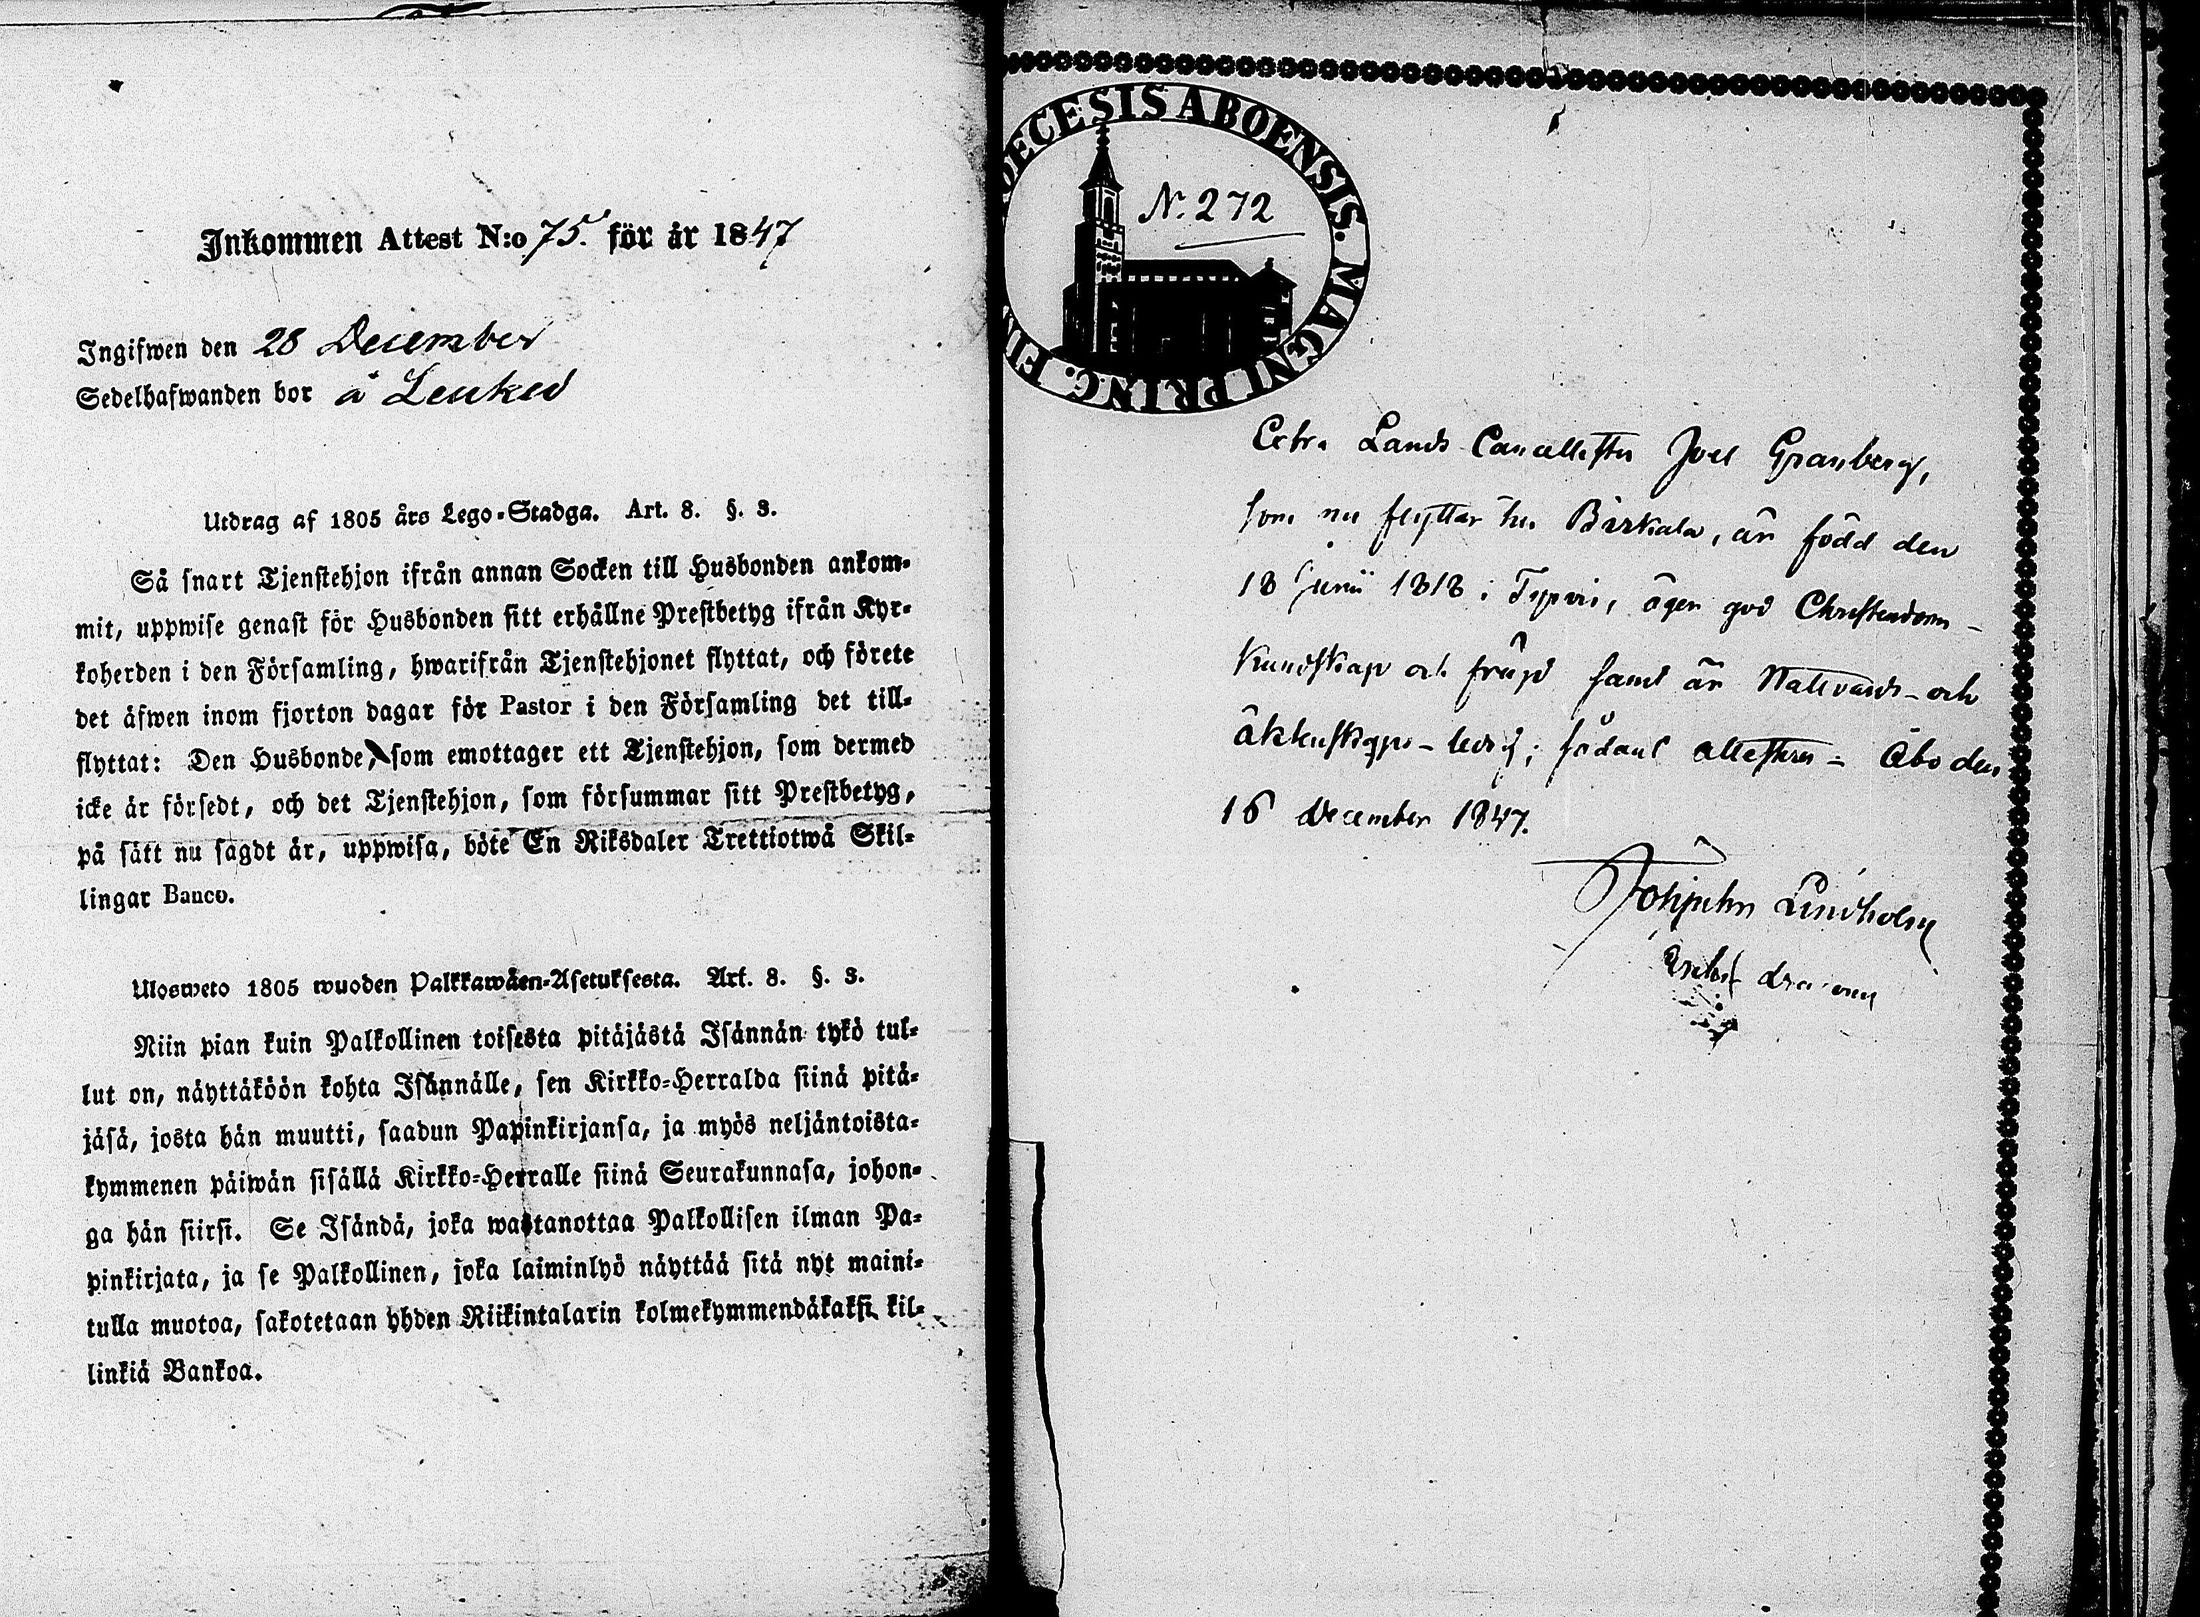 Inkommen Attest N:o 75. för år 1847
Ingifwen den 28 December
Sedelhafwanden bor å Leuked
Utdrag af 1805 års Lego-Stadga. Art. 8. §. 3.
Så snart Tjenstehjon ifrån annan Socken till Husbonden ankom-
mit, uppwise genast för Husbonden sitt erhållne Prestbetyg ifrån Kyr-
koherden i den Församling, hwarifrån Tjenstehjonet flyttat, och förete
det äfwen inom fjorton dagar för Pastor i den Församling det till-
flyttat: Den Husbonde, som emottager ett Tjenstehjon, som dermed
icke är försedt, och det Tjenstehjon, som försummar sitt Prestbetyg,
på sätt nu sagdt är, uppwisa, böte En Riksdaler Trettiotwå Skil-
lingar Banco.
Ulosweto 1805 wuoden Palkkawäen-Asetuksesta. Art. 8. §. 3.
Niin pian kuin Palkollinen toisesta pitäjästä Isännän tykö tul-
lut on, näyttäköön kohta Isännälle, sen Kirkko-Herralda siinä pitä-
jäsä, josta hän muutti, saadun Papinkirjansa, ja myös neljäntoista-
kymmenen päiwän sisällä Kirkko-Herralle siinä Seurakunnasa, johon-
ga hän siirsi. Se Isändä, joka wastanottaa Palkollisen ilman Pa-
pinkirjata, ja se Palkollinen, joka laiminlyö näyttää sitä nyt maini-
tulla muotoa, sakotetaan yhden Riikintalarin kolmekymmendäkaksi kil-
linkiä Bankoa.
DECESIS ABOENSIS. MAGNI PRINC. FIN
N. 272
Extra Lands Cancellisten Joel Granberg,
som nu flyttar till Birkala, är född den
18 Junii 1818 i Typvis, äger god Christendoms-
kundskap och frägd samt är Nattvards- och
äktenskaps-ledig; sådant attesteras - Åbo den
16 December 1847.
Lindholm